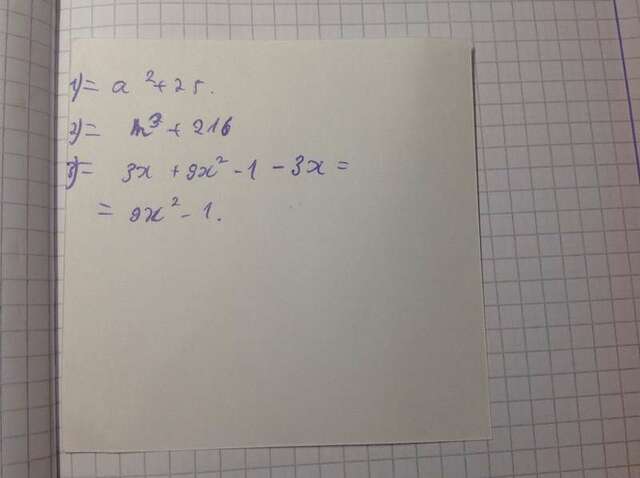 1) = a² + 25.
2) = m³ + 216
3) = 3x + 9x² - 1 - 3x =
= 9x² - 1.